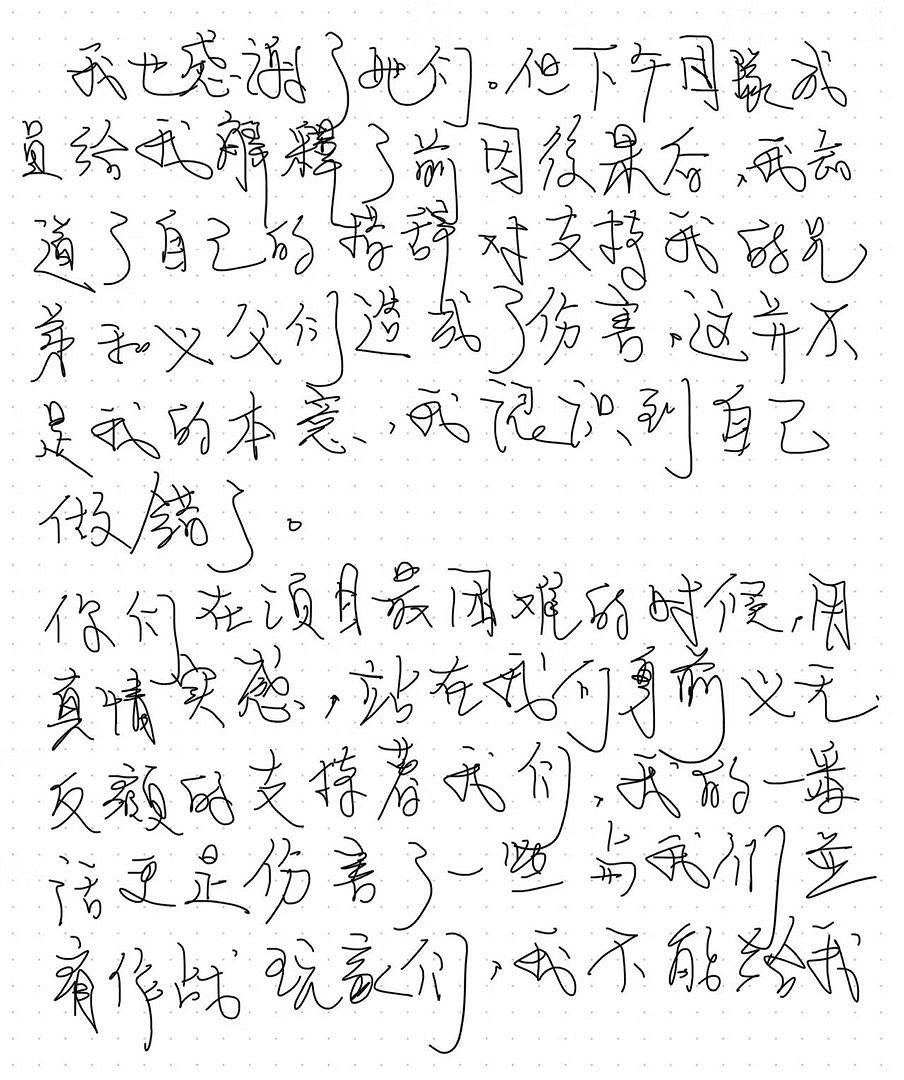 我也感谢了她们。但下午团队成
员给我解释了前因後果后,我知
道了自己的措辞对支持我的兄
弟和义父们造成了伤害,这并不
是我的本意,我认识到自己
做错了。
你们在项目最困难的时候,用
真情实感,站在我们身前义无
反顾的支撑着我们,我的一番
话更是伤害了一些与我们并
肩作战玩家们,我不能给我